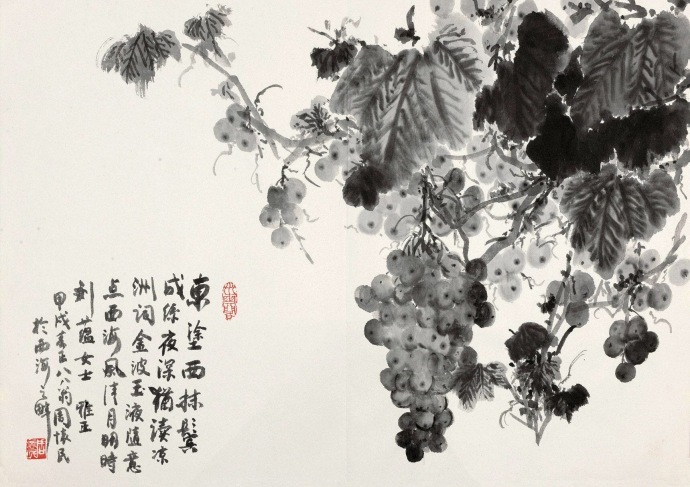 東塗西抹鬓
成絲夜深猶讀凉
洲词金波玉液隨意
点西海風清月明時
剑蕴女士 雅正
甲戌春正八八翁周怀民
於西海之畔